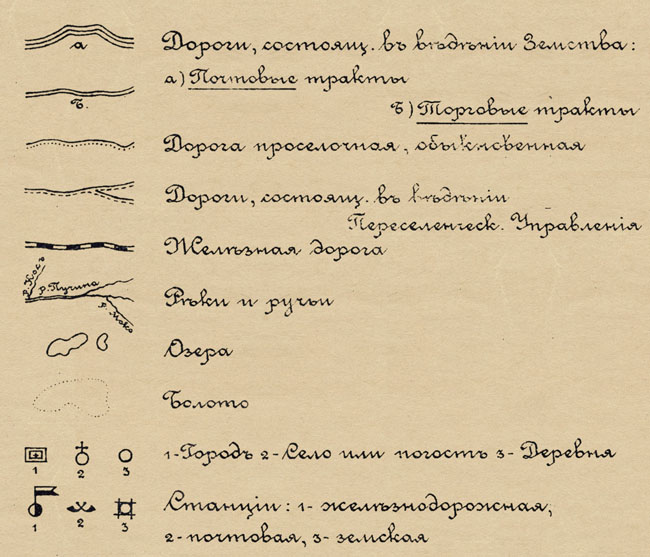 а
Дороги, состоящ. въ вѣдѣніи Земства:
а) Почтовые тракты
Б.
Б) Торговые тракты
Дорога проселочная, обыкновенная
Дороги, состоящ. въ вѣдѣніи
Переселенческ. Управленія
Желѣзная дорога
р. Косъ
р. Пучина
р. Моко
Рѣки и ручьи
Озера
Болото
1 2 3
1-Городъ 2-Село или погостъ 3-Деревня
1 2 3
Станціи: 1- желѣзнодорожная,
2- почтовая, 3- земская